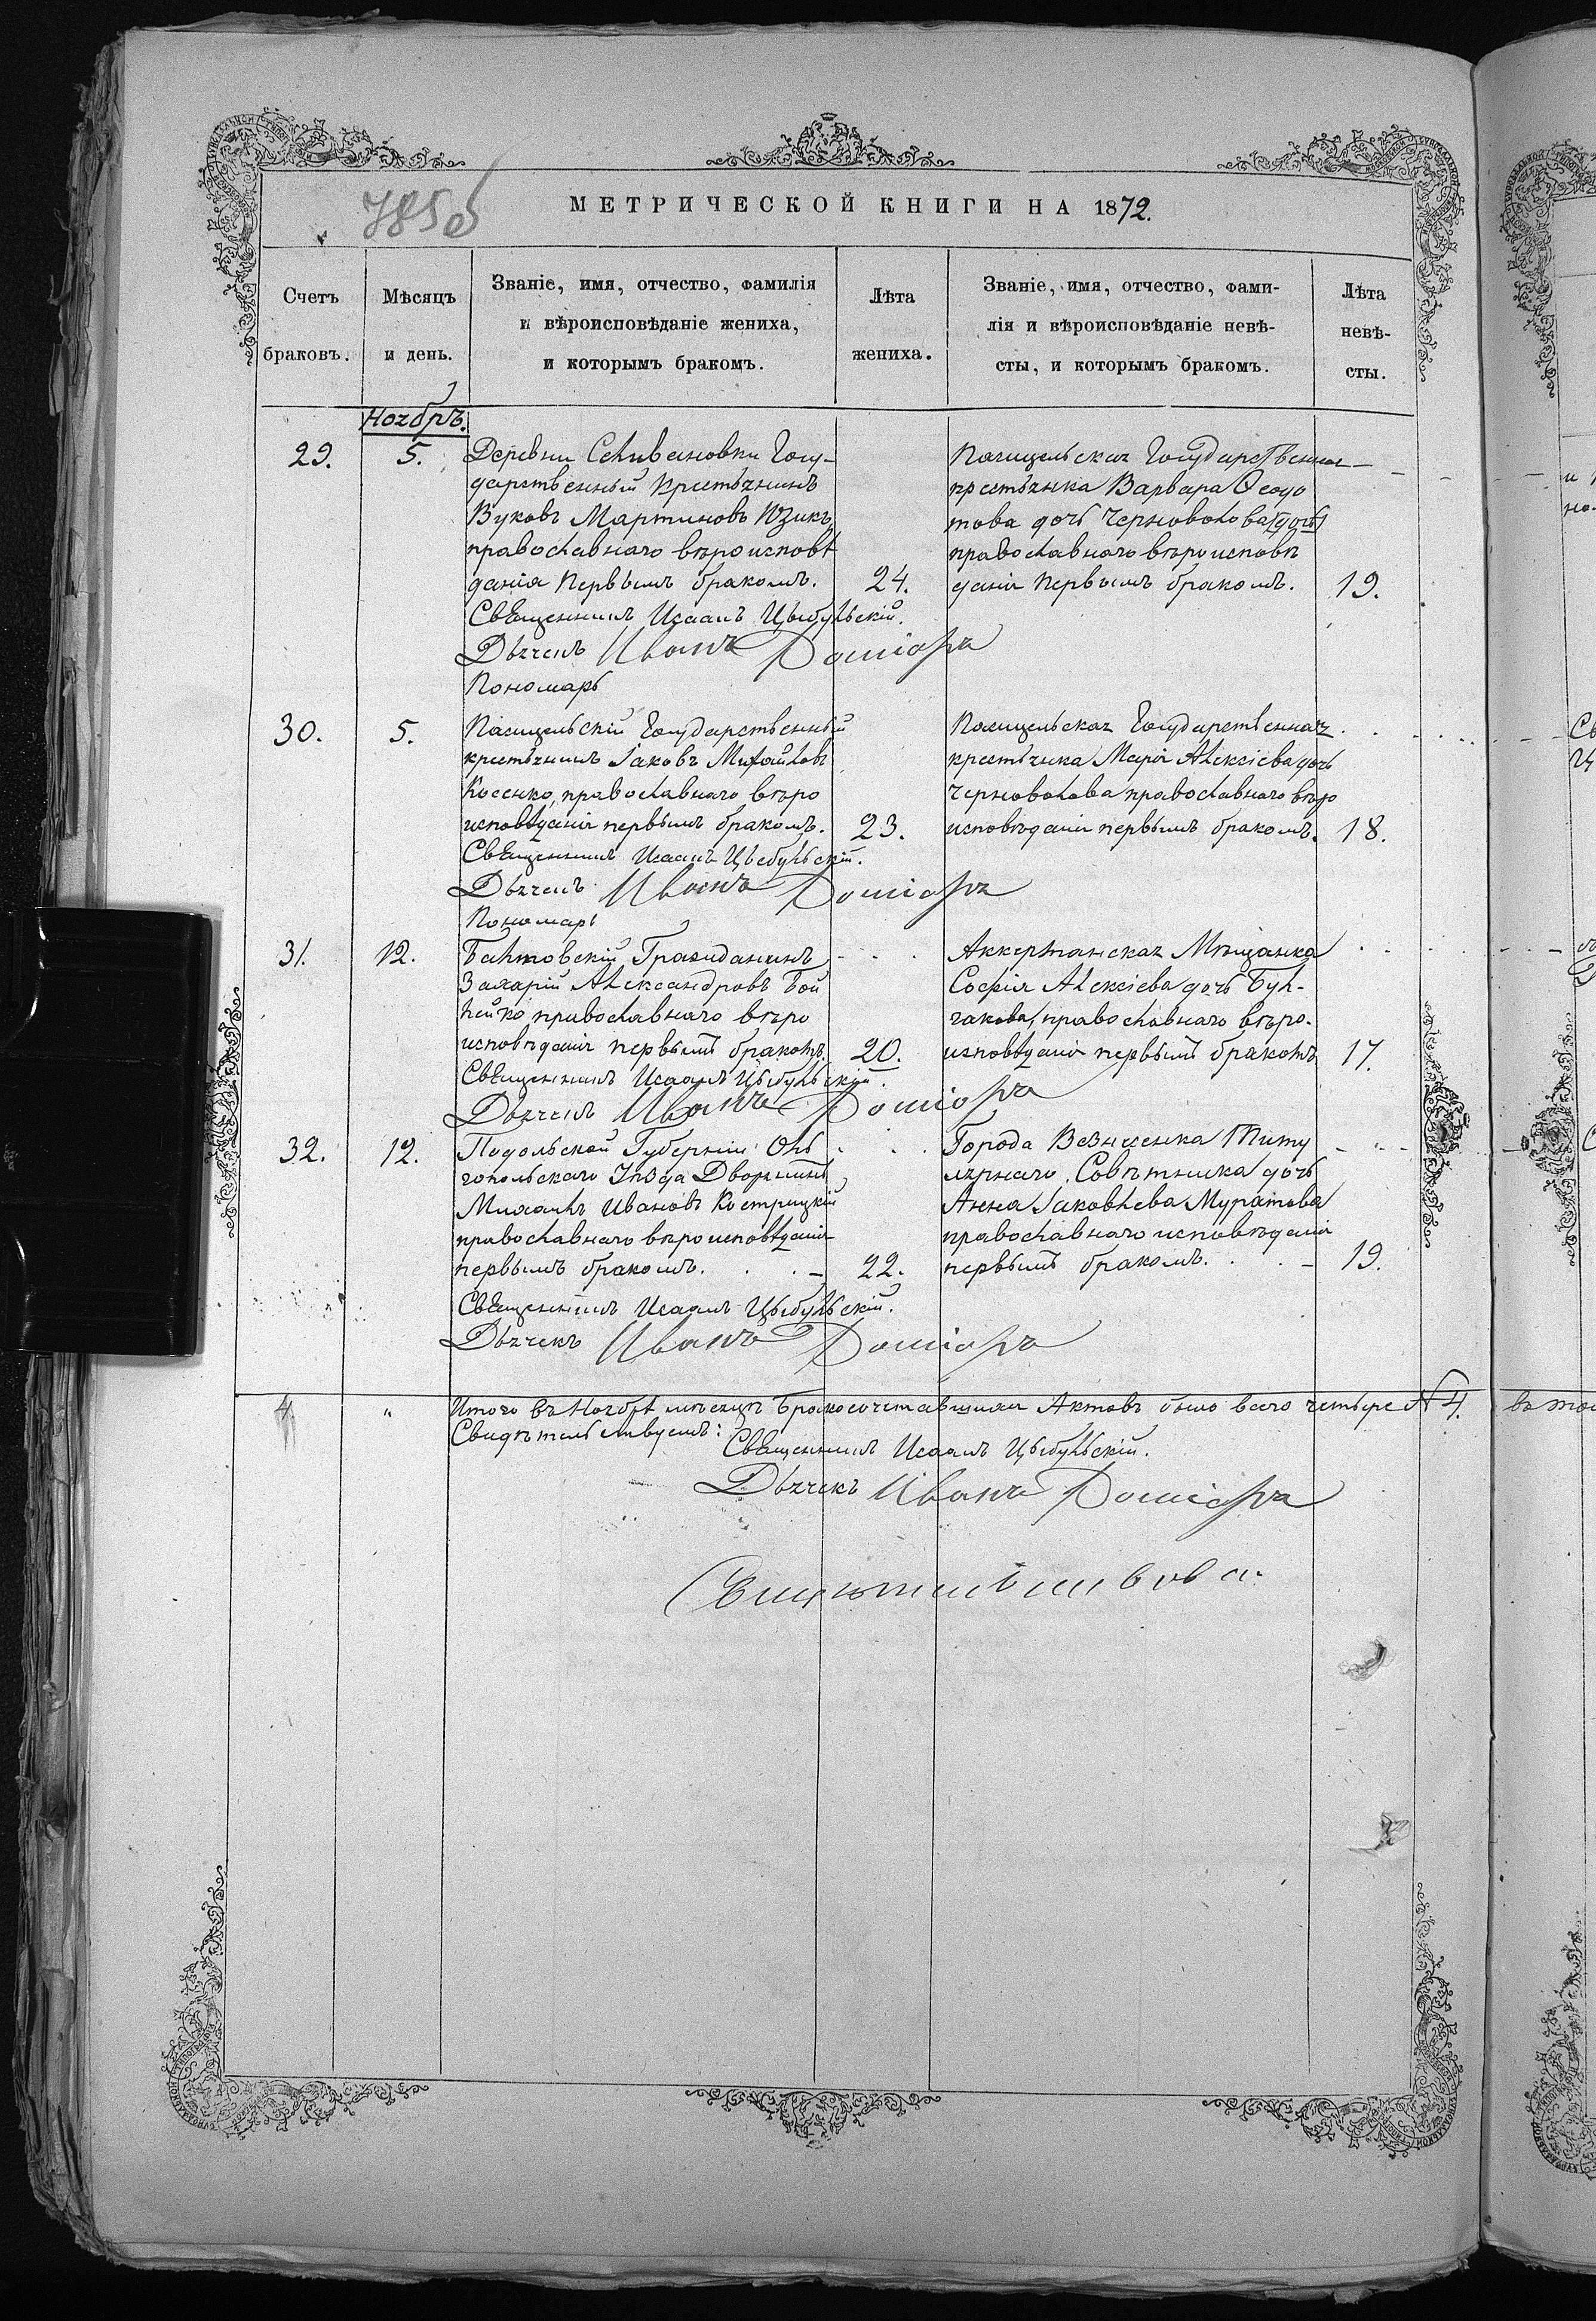 785 об
МЕТРИЧЕСКОЙ КНИГИ НА 1872.
Счетъ браковъ.
Мѣсяцъ и день.
Званіе, имя, отчество, фамилія
и вѣроисповѣданіе жениха,
и которымъ бракомъ.
Лѣта
жениха.
Званіе, имя, отчество, фами-
лія и вѣроисповѣданіе невѣ-
сты, и которымъ бракомъ.
Лѣта
невѣ-
сты.
Ноябрь.
29.
5.
Деревни Селивановки Госу-
дарственный Крестьянинъ
Вуковъ Мартиновъ Юзикъ
православнаго вѣроисповѣ
данія Первымъ бракомъ.
24.
Священникъ Исаакъ Цыбульскій.
Дьячекъ Иванъ
Пономарь
Государственная
крестьянка Варвара Ѳеодо
това дочь Черноволова (дочь)
православнаго вѣроисповѣ
данія Первымъ бракомъ.
19.
30.
5.
Государственный
крестьянинъ Іаковъ Михайловъ
Косенко, православнаго вѣро
исповѣданія первымъ бракомъ.
23.
Священникъ Исаакъ Цыбульскій.
Дьячекъ Иванъ
Пономарь
Государственная
крестьянка Марія Алексіева дочь
Черноволова православнаго вѣро
исповѣданія первымъ бракомъ.
18.
31.
12.
Балтовскій Гражданинъ
Захарій Александровъ Бой
православнаго вѣро
исповѣданія первымъ бракомъ.
20.
Священникъ Исаакъ Цыбульскій.
Дьячекъ Иванъ
Аккерманская Мѣщанка
Софія Алексіева дочь Бул-
гакова, православнаго вѣро-
исповѣданія первымъ бракомъ
17.
32.
12.
Подольской Губерніи Оль
гопольскаго Уѣзда Дворянинъ
Михаилъ Ивановъ Кострицкій
православнаго вѣроисповѣданія
первымъ бракомъ.
22.
Священникъ Исаакъ Цыбульскій.
Дьячекъ Иванъ
Города Вознисенка Титу
лярнаго Совѣтника дочь
Анна Іаковлева Муратова
православнаго исповѣданія
первымъ бракомъ.
19.
4
"
Итого въ Ноябрѣ мѣсяцѣ Бракосочетавшихся Актовъ было всего четыре № 4.
Свидѣтельствуемъ:
Священникъ Исаакъ Цыбульскій.
Дьячекъ Иванъ